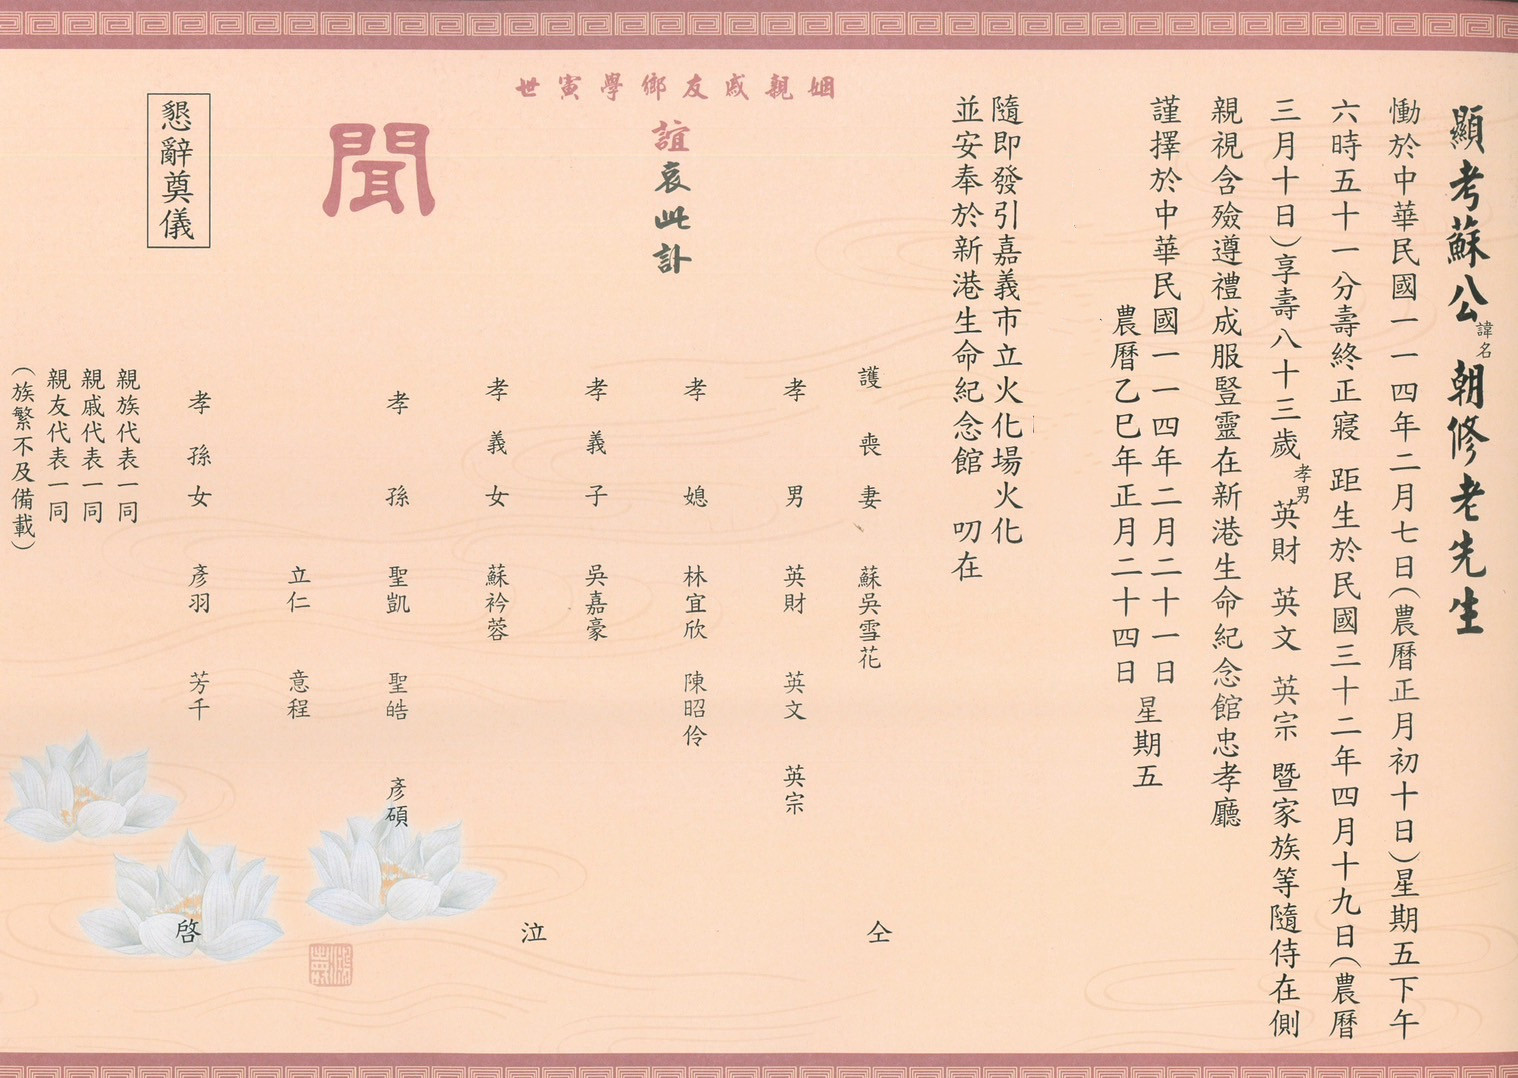 顯考蘇公諱名朝修老先生
慟於中華民國一一四年二月七日(農曆正月初十日)星期五下午
六時五十一分壽終正寢 距生於民國三十二年四月十九日(農曆
三月十日)享壽八十三歲孝男英財 英文 英宗 暨家族等隨侍在側
親視含殮遵禮成服豎靈在新港生命紀念館忠孝廳
謹擇於中華民國一一四年二月二十一日
農曆乙巳年正月二十四日
星期五
隨即發引嘉義市立火化場火化
並安奉於新港生命紀念館 叨在
姻親戚友鄉學寅世
誼哀此訃
聞
護喪妻 蘇吳雪花
孝男 英財 英文 英宗
孝媳 林宜欣 陳昭伶
孝義子 吳嘉豪
孝義女 蘇衿蓉
孝孫 聖凱 聖皓 彥碩
立仁 意程
孝孫女 彥羽 芳千
仝
泣
啓
親族代表一同
親戚代表一同
親友代表一同
(族繁不及備載)
懇辭奠儀